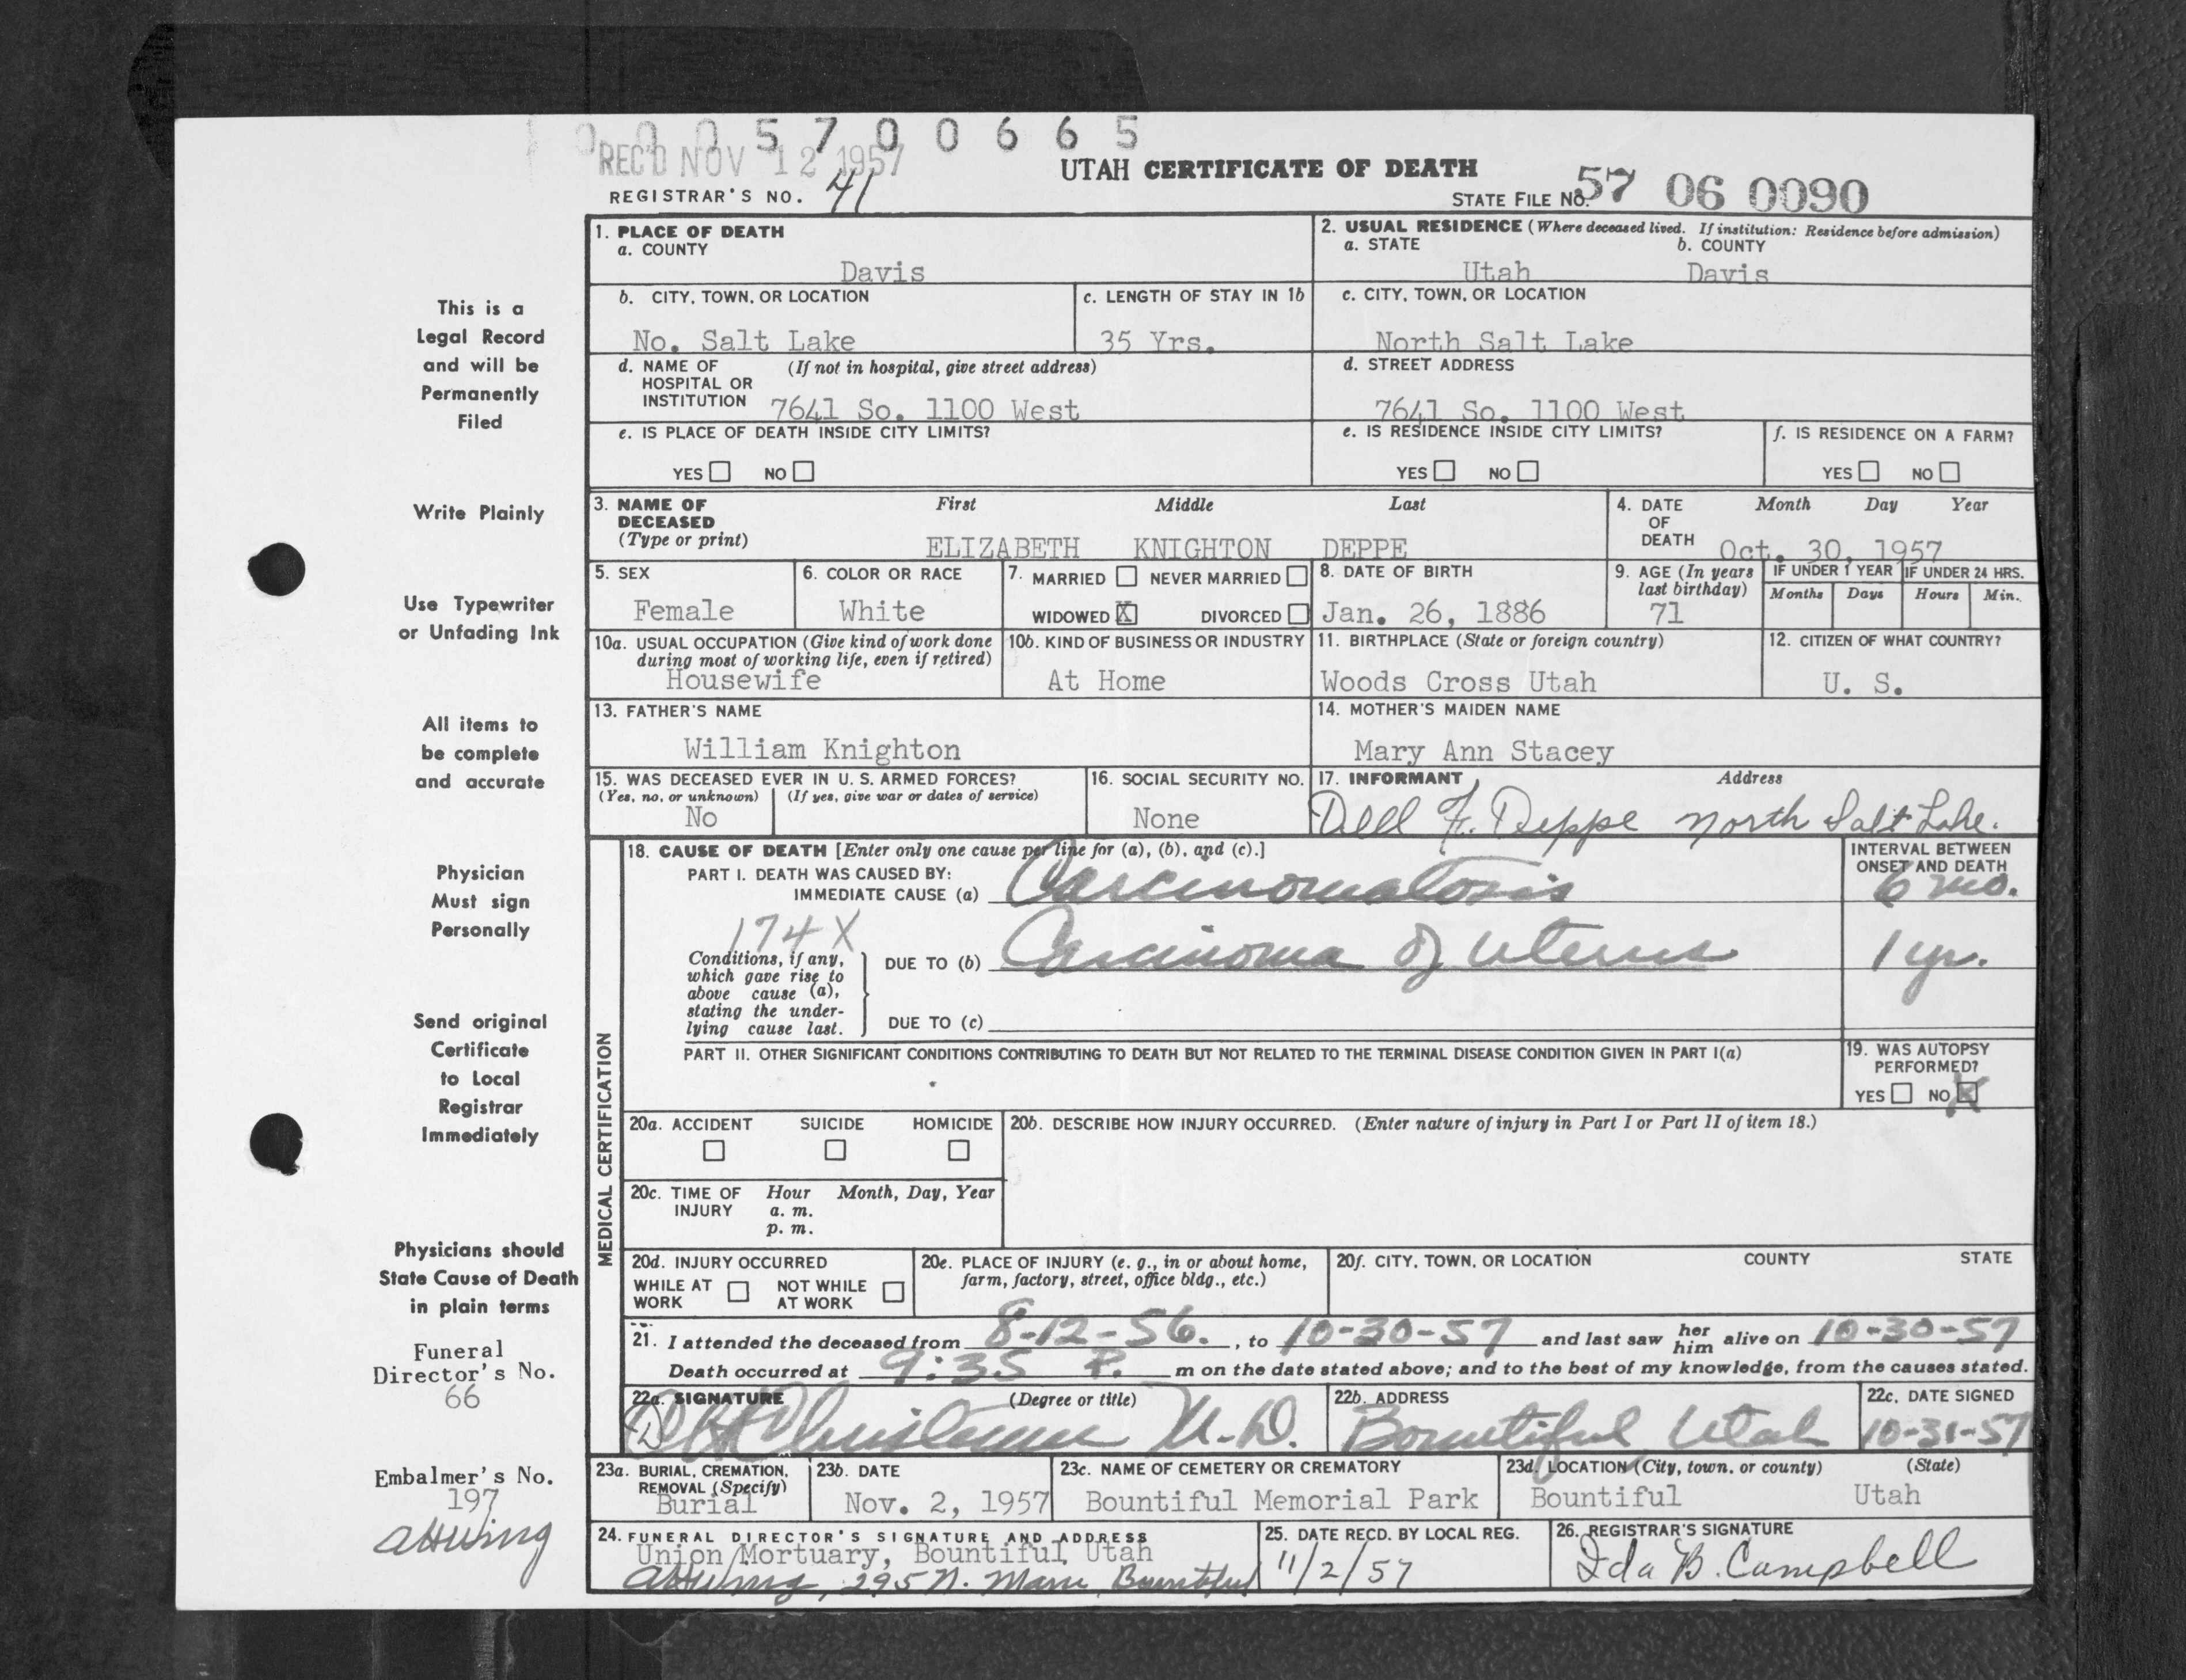 0 0 0 5 7 0 0 6 6 5
REC'D NOV 12 1957
UTAH CERTIFICATE OF DEATH
REGISTRAR'S NO. 41
STATE FILE NO. 57 06 0090
This is a
Legal Record
and will be
Permanently
Filed
Write Plainly
Use Typewriter
or Unfading Ink
All items to
be complete
and accurate
Physician
Must sign
Personally
Send original
Certificate
to Local
Registrar
Immediately
Physicians should
State Cause of Death
in plain terms
Funeral
Director's No.
66
Embalmer's No.
197
1. PLACE OF DEATH
a. COUNTY
Davis
2. USUAL RESIDENCE (Where deceased lived. If institution: Residence before admission)
a. STATE b. COUNTY
Utah Davis
b. CITY, TOWN, OR LOCATION
No. Salt Lake
c. LENGTH OF STAY IN 1b
35 Yrs.
c. CITY, TOWN, OR LOCATION
North Salt Lake
d. NAME OF (If not in hospital, give street address)
HOSPITAL OR
INSTITUTION 7641 So. 1100 West
d. STREET ADDRESS
7641 So. 1100 West
e. IS PLACE OF DEATH INSIDE CITY LIMITS?
YES NO
e. IS RESIDENCE INSIDE CITY LIMITS?
YES NO
f. IS RESIDENCE ON A FARM?
YES NO
3. NAME OF First Middle Last
DECEASED
(Type or print)
ELIZABETH KNIGHTON DEPPE
4. DATE Month Day Year
OF
DEATH Oct. 30, 1957
5. SEX
Female
6. COLOR OR RACE
White
7. MARRIED NEVER MARRIED
WIDOWED X DIVORCED
8. DATE OF BIRTH
Jan. 26, 1886
9. AGE (In years
last birthday)
71
IF UNDER 1 YEAR IF UNDER 24 HRS.
Months Days Hours Min.
10a. USUAL OCCUPATION (Give kind of work done
during most of working life, even if retired)
Housewife
10b. KIND OF BUSINESS OR INDUSTRY
At Home
11. BIRTHPLACE (State or foreign country)
Woods Cross Utah
12. CITIZEN OF WHAT COUNTRY?
U. S.
13. FATHER'S NAME
William Knighton
14. MOTHER'S MAIDEN NAME
Mary Ann Stacey
15. WAS DECEASED EVER IN U. S. ARMED FORCES?
(Yes, no, or unknown) (If yes, give war or dates of service)
No
16. SOCIAL SECURITY NO.
None
17. INFORMANT Address
Dell F. Deppe North Salt Lake.
MEDICAL CERTIFICATION
18. CAUSE OF DEATH [Enter only one cause per line for (a), (b), and (c).]
PART I. DEATH WAS CAUSED BY:
IMMEDIATE CAUSE (a) Carcinomatosis
INTERVAL BETWEEN
ONSET AND DEATH
6 mo.
174 X
Conditions, if any,
which gave rise to
above cause (a),
stating the under-
lying cause last.
DUE TO (b) Carcinoma of uterus
1 yr.
DUE TO (c)
PART II. OTHER SIGNIFICANT CONDITIONS CONTRIBUTING TO DEATH BUT NOT RELATED TO THE TERMINAL DISEASE CONDITION GIVEN IN PART I(a)
19. WAS AUTOPSY
PERFORMED?
YES NO X
20a. ACCIDENT SUICIDE HOMICIDE
20b. DESCRIBE HOW INJURY OCCURRED. (Enter nature of injury in Part I or Part II of item 18.)
20c. TIME OF Hour Month, Day, Year
INJURY a. m.
p. m.
20d. INJURY OCCURRED
WHILE AT NOT WHILE
WORK AT WORK
20e. PLACE OF INJURY (e. g., in or about home,
farm, factory, street, office bldg., etc.)
20f. CITY, TOWN, OR LOCATION COUNTY STATE
21. I attended the deceased from 8-12-56. , to 10-30-57 and last saw her him alive on 10-30-57
Death occurred at 9:35 P. m on the date stated above; and to the best of my knowledge, from the causes stated.
22a. SIGNATURE (Degree or title)
M.D.
22b. ADDRESS
Bountiful Utah
22c. DATE SIGNED
10-31-57
23a. BURIAL, CREMATION,
REMOVAL (Specify)
Burial
23b. DATE
Nov. 2, 1957
23c. NAME OF CEMETERY OR CREMATORY
Bountiful Memorial Park
23d. LOCATION (City, town, or county) (State)
Bountiful Utah
24. FUNERAL DIRECTOR'S SIGNATURE AND ADDRESS
Union Mortuary, Bountiful Utah
295 N. Main Bountiful
25. DATE RECD. BY LOCAL REG.
11/2/57
26. REGISTRAR'S SIGNATURE
Ida B. Campbell